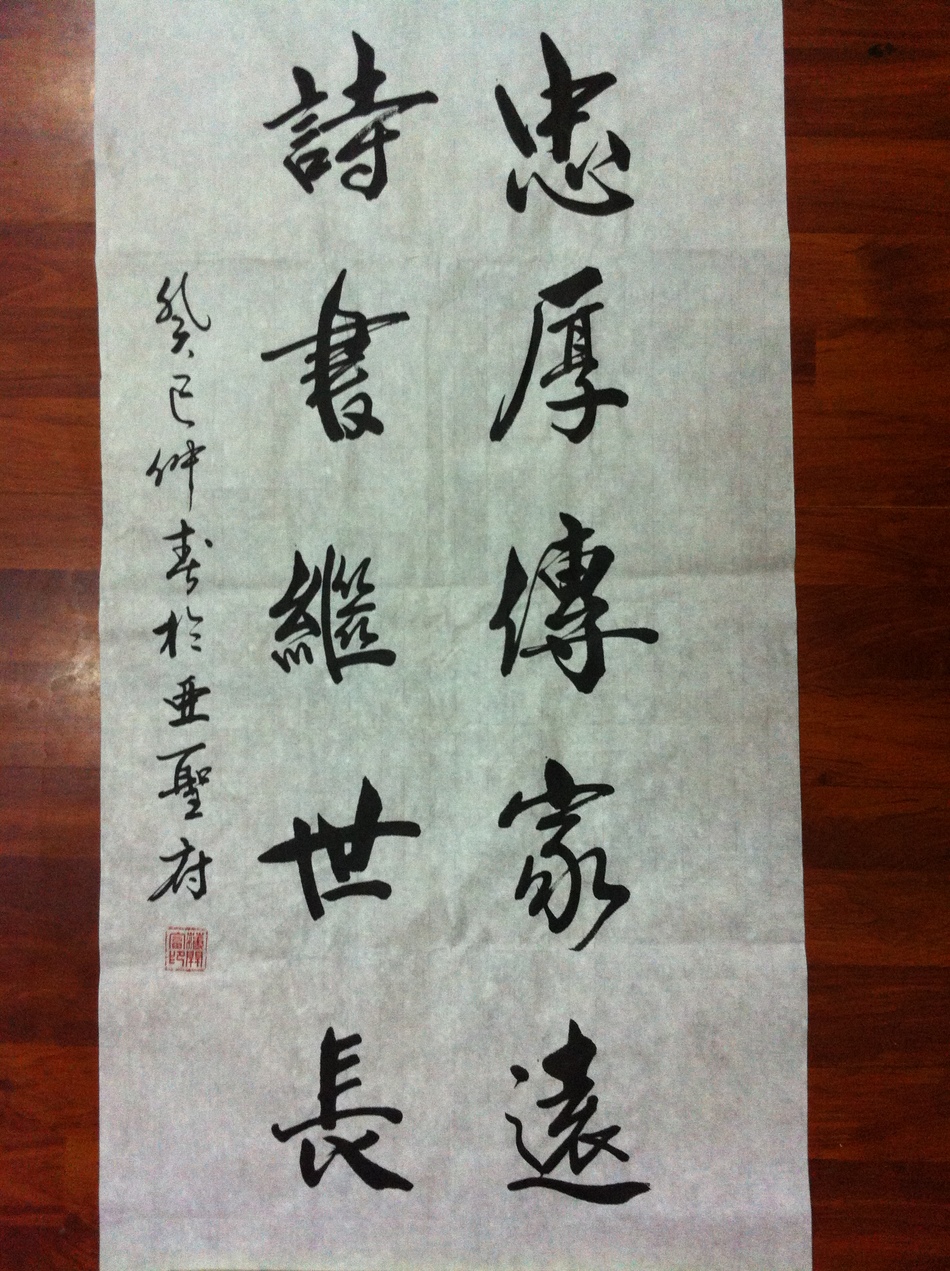 忠厚傳家遠
詩書繼世長
癸巳仲春於亞聖府